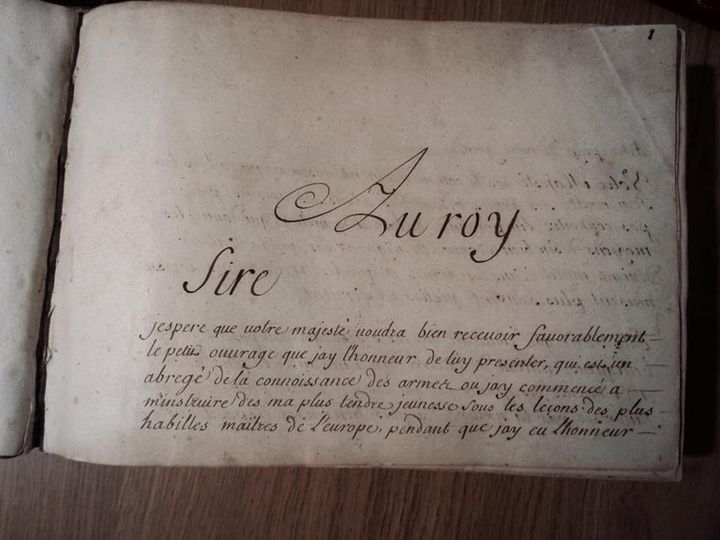 1
Au roy
Sire
jespere que votre majesté voudra bien recevoir favorablement
le petit ouvrage que jay l'honneur de luy presenter, qui est un
abregé de la connoissance des armes ou jay commencé a
m'instruire des ma plus tendre jeunesse sous les leçons des plus
habilles maîtres de l'europe, pendant que jay eu l'honneur